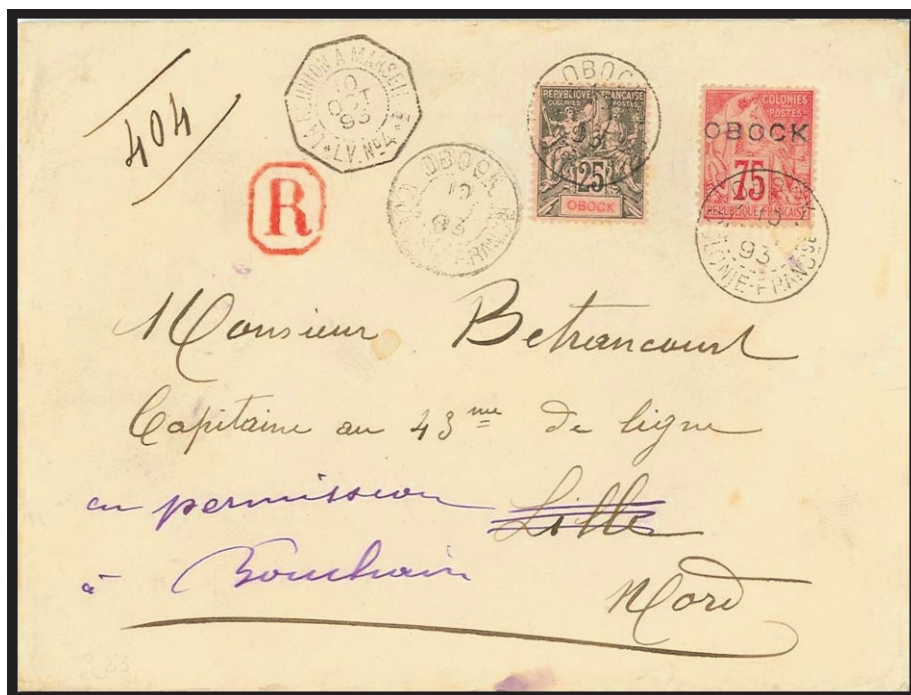 404
LA REUNION A MARSEILLE
10
OCT
93
L.V. Nº4
R
OBOCK
10
93
OBOCK
93
REPUBLIQUE FRANÇAISE
COLONIES POSTES
25
OBOCK
COLONIES
POSTES
OBOCK
75
REPUBLIQUE FRANÇAISE
10
93
COLONIE-FRANCSE
Monsieur Betrancourt
Capitaine au 43me de ligne
en permission Lille
à Bouchain
Nord